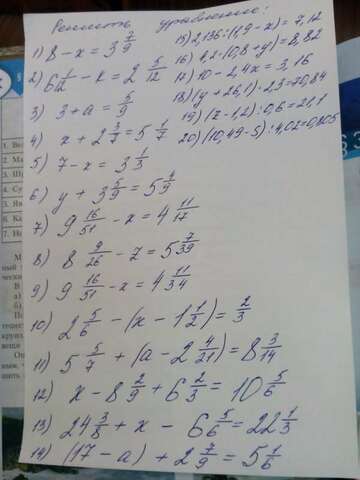 Решить уравнение:
1) 8 - x = 3 7/9
2) 6 1/12 - x = 2 5/12
3) 3 + a = 5/9
4) x + 2 3/7 = 5 1/7
5) 7 - x = 3 1/3
6) y + 3 5/9 = 5 4/9
7) 9 16/51 - x = 4 11/17
8) 8 9/26 - z = 5 7/39
9) 9 16/51 - x = 4 11/34
10) 2 5/6 - (x - 1 1/2) = 2/3
11) 5 5/7 + (a - 2 4/21) = 8 3/14
12) x - 8 2/9 + 6 2/3 = 10 5/6
13) 24 3/8 + x - 6 5/6 = 22 1/3
14) (17 - a) + 2 7/9 = 5 1/6
15) 2,136 : (1,9 - x) = 7,12
16) 4,2 · (0,8 + y) = 8,82
17) 10 - 2,4x = 3,16
18) (y + 26,1) · 2,3 = 70,84
19) (z - 1,2) : 0,6 = 21,1
20) (10,49 - s) : 4,02 = 0,805